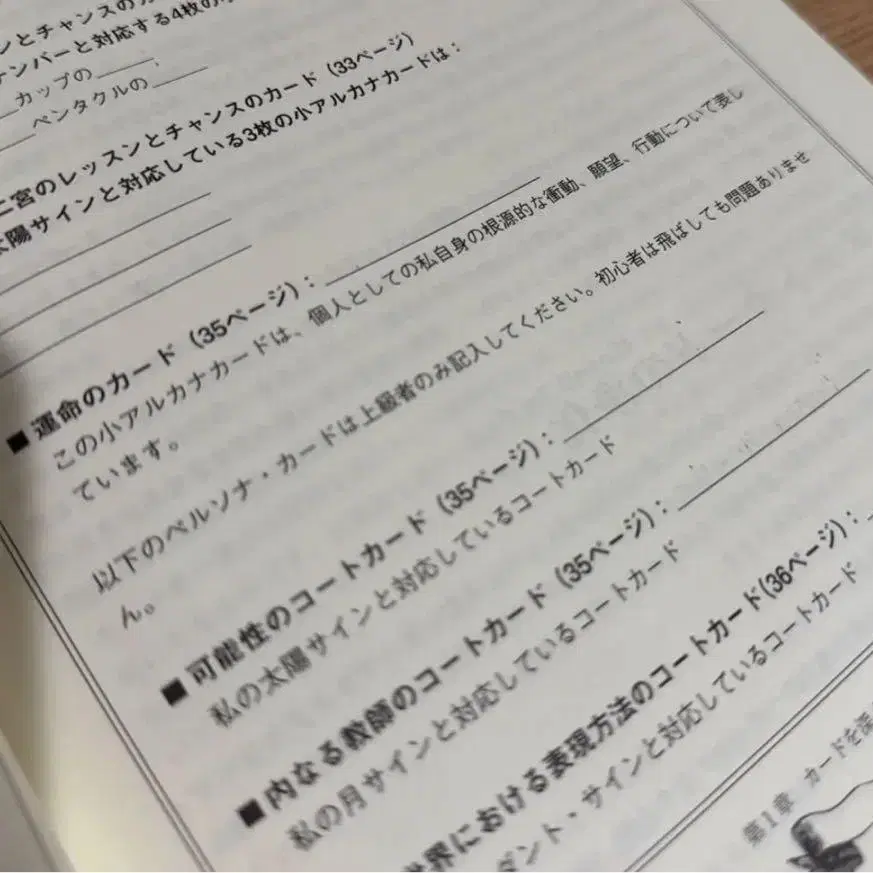 ンとチャンスのカ
ナンバーと対応する4枚の小
カップの＿＿＿；
ペンタクルの＿＿＿
二宮のレッスンとチャンスのカード（33ページ）
太陽サインと対応している3枚の小アルカナカードは：
■ 運命のカード（35ページ）：＿＿＿
この小アルカナカードは、個人としての私自身の根源的な衝動、願望、行動について表し
ています。
以下のペルソナ・カードは上級者のみ記入してください。初心者は飛ばしても問題ありませ
ん。
■ 可能性のコートカード（35ページ）：＿＿＿
私の太陽サインと対応しているコートカード
■ 内なる教師のコートカード（35ページ）：＿＿＿
私の月サインと対応しているコートカード
世界における表現方法のコートカード(36ページ)：
ダント・サインと対応しているコートカード
第1章 カードを深